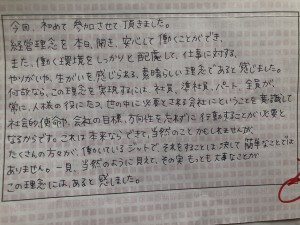 今回、初めて参加させて頂きました。
経営理念を本日、聞き、安心して働くことができ、
また、働く環境をしっかりと配慮して、仕事に対する、
やりがいや、生がいを感じられる、素晴らしい理念であると感じました。
何故なら、この理念を実現するには、社員、準社員、パート、全員が、
常に、人様の役にたち、世の中に必要とされる会社にということを意識して
社会的使命や、会社の目標、方向性を忘れずに行動することが必要と
なるからです。これは本来ならできて当然のことかもしれませんが、
たくさんの方々が、働いているジットで、それをすることは、決して簡単なことでは
ありません。一見、当然のように見えて、その実もっとも大事なことが
この理念には、あると感じました。